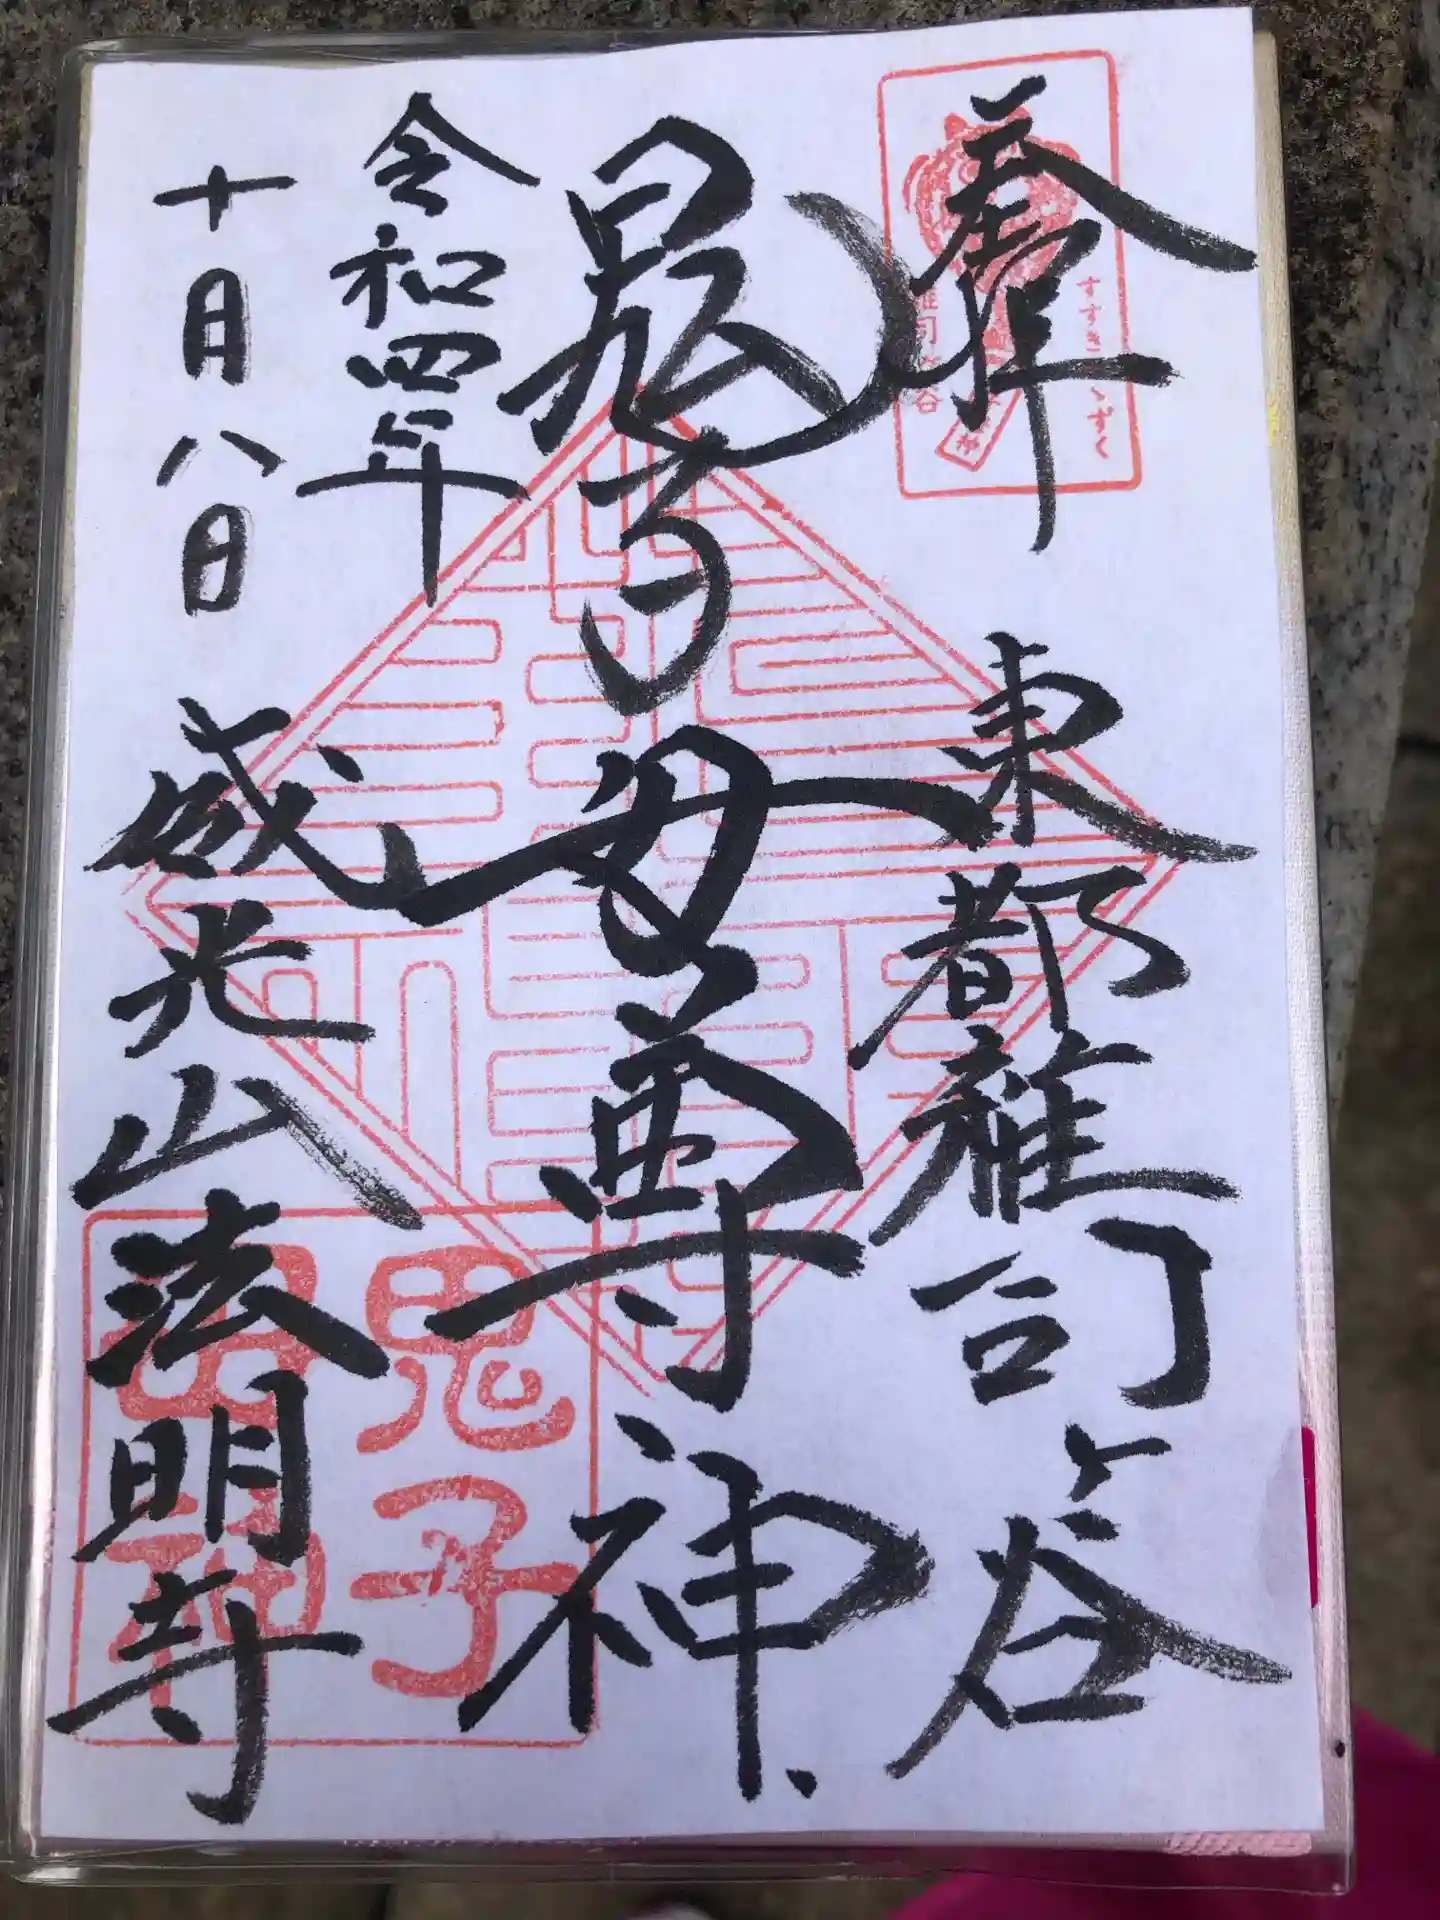 奉拝
東都雑司ヶ谷
鬼子母尊神
令和四年
十月八日
威光山法明寺
すすきみゝずく
雑司ヶ谷
鬼子
母神